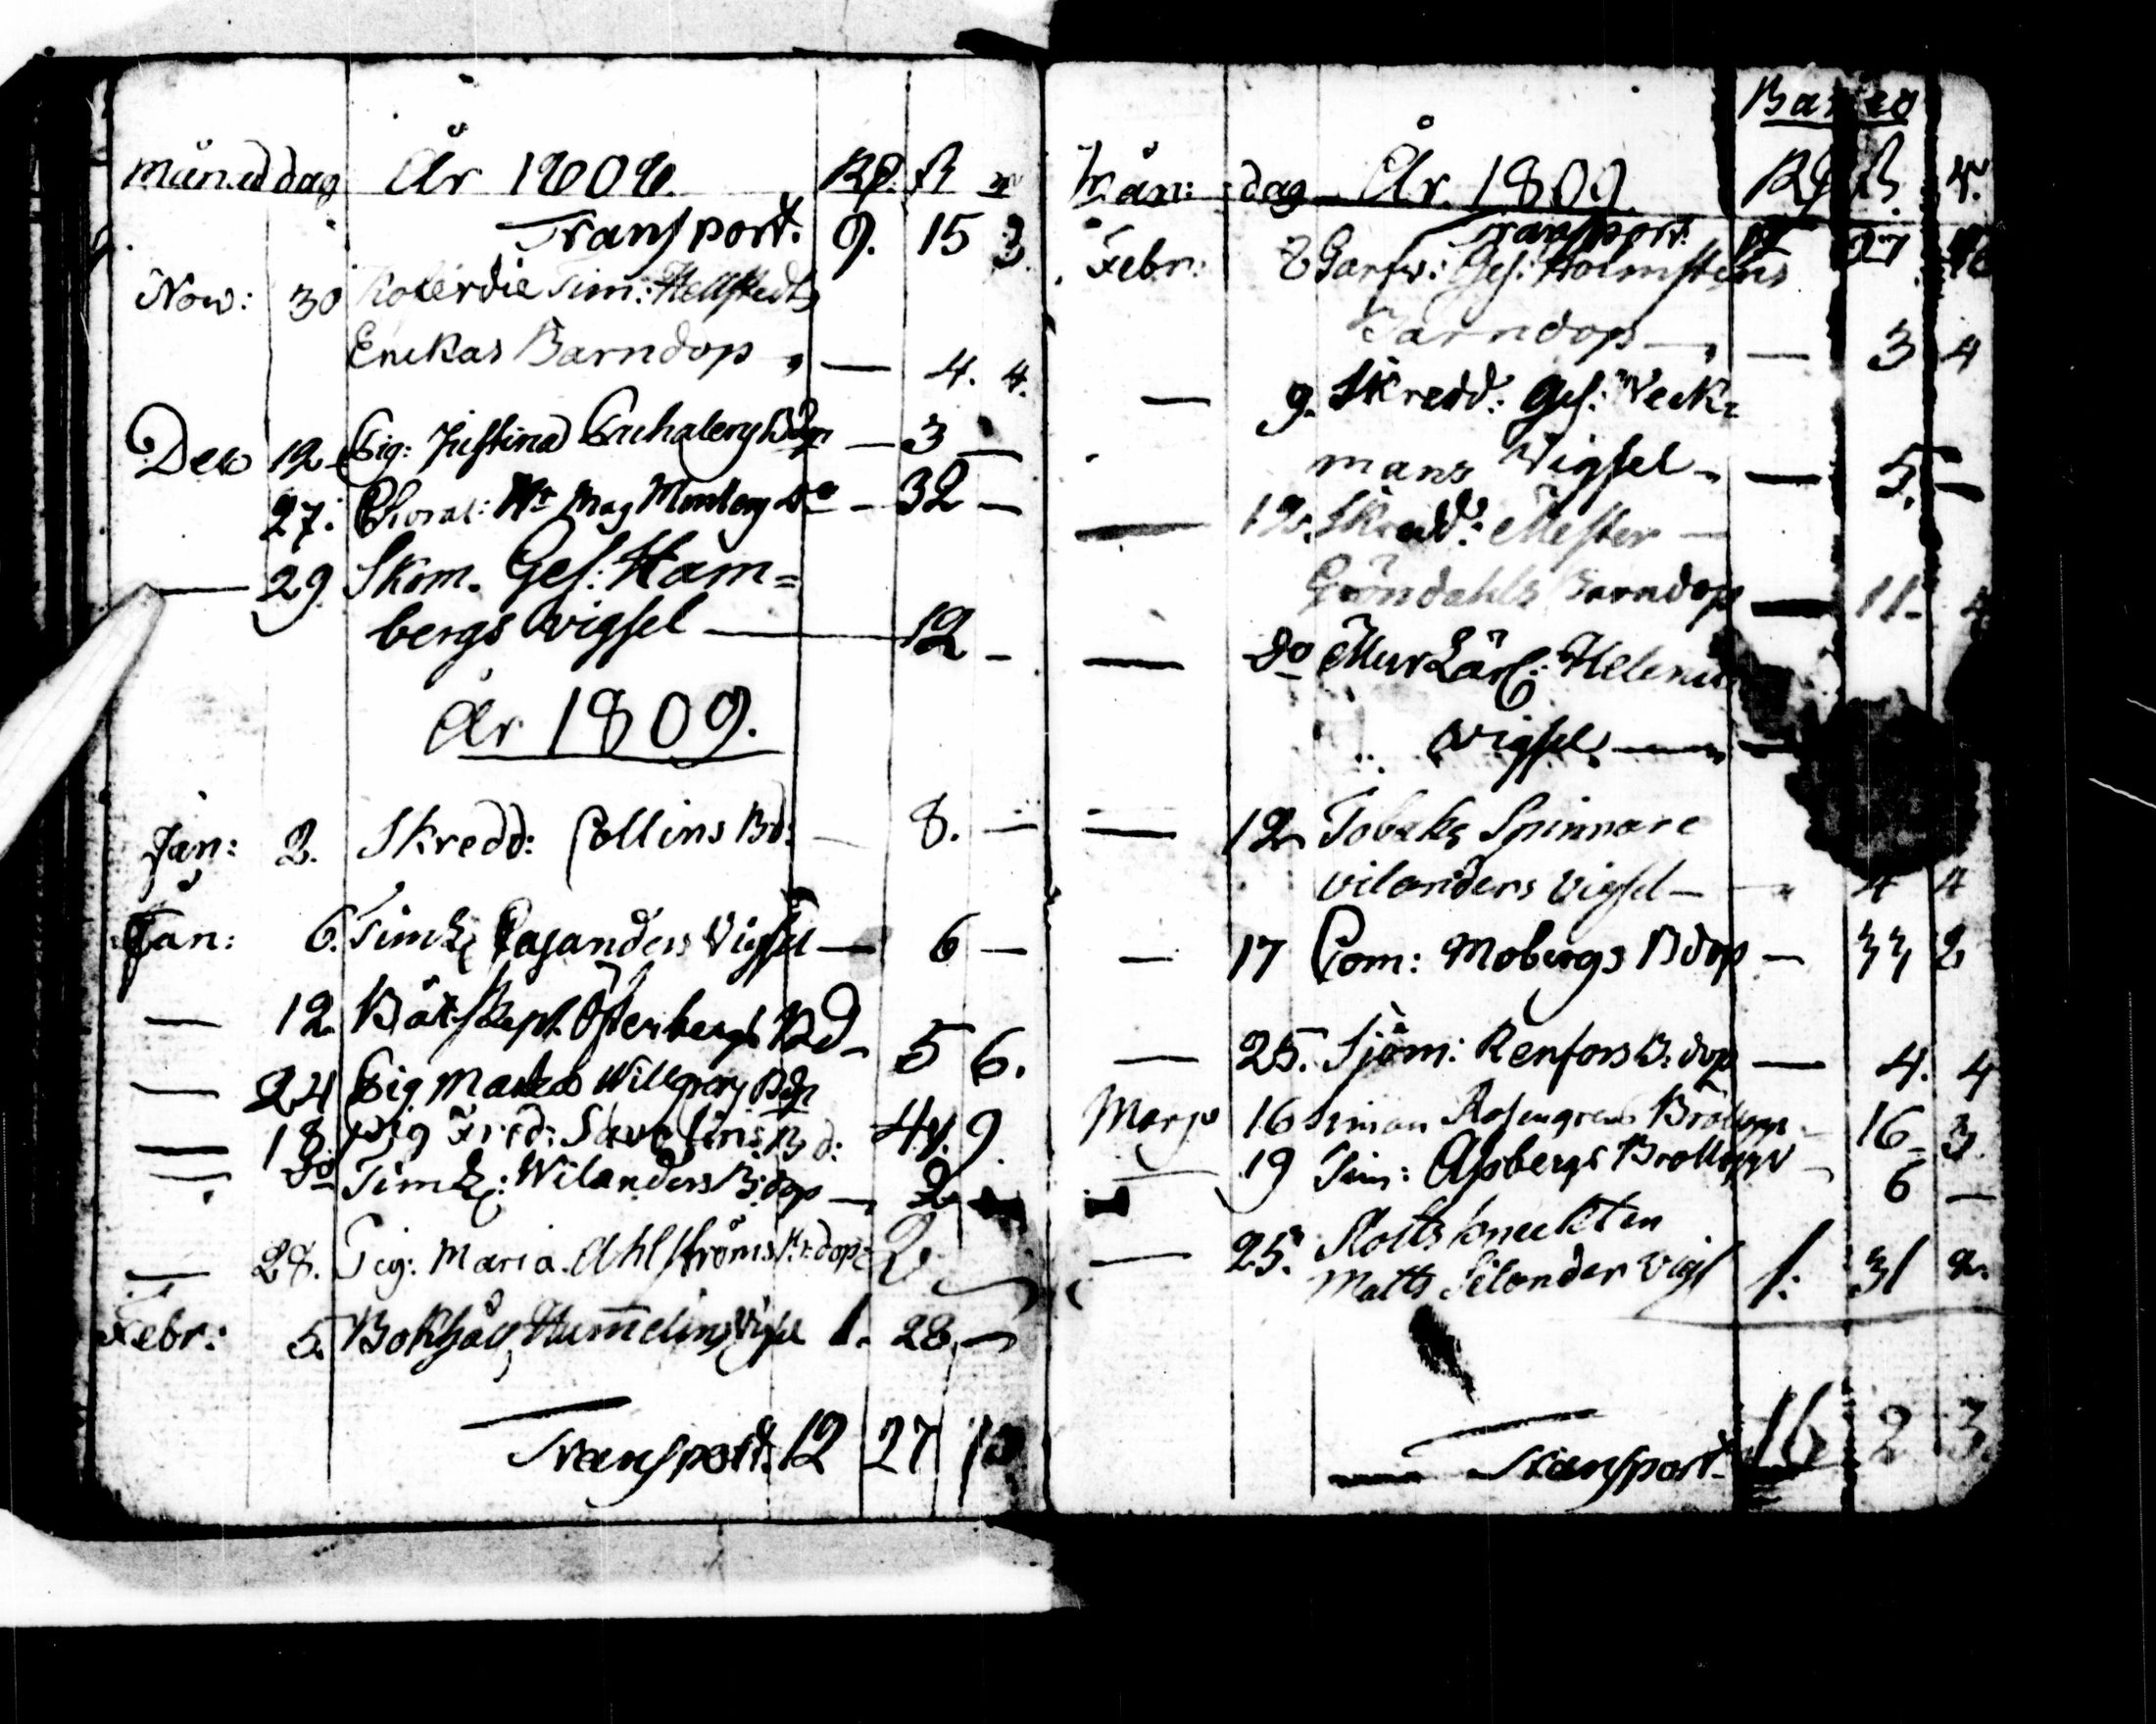 Måned dag År 1808. Rd. ß r
Transport. 9. 15 3.
Now: 30 Tim: Hellstedts
Enckas Barndop, — 4. 4.
Dec 12 Pig: Justina Bdp — 3 —
27. Mag Do — 32 —
— 29. Skom. Ges: Ham=
bergs vigsel — 12 —
År 1809.
Jan: 2. Skredd: Collins Bd. — 8. —
Jan: 6. Timk: Pasanders Vigsel — 6 —
— 12. Båtskept. Österbergs Bd — 5 6.
— 24 Pig Bdp
— 18 Pig Fred: B d: 44. 9.
— do Timk: Wilanders B:dop — 2
— 28. Pig: Maria Ahlströms Br:dop 2.
Febr: 5. Bokhåll Hummelins Vigsel 1. 28. —
Transport. 12 27 10
Banco
Mån: dag År 1809. Rd ß. r.
Transport. 12 27 10
Febr: 8 Garfw: Ges: Holmstens
Barndop —, — 3 4
— 9. Skredd: Ges: Weck=
mans Vigsel — — 5. —
— 12. Skredd: Mester —
Gröndahls Barndop — 11. 4
— do Mur Lärl: Helenii
vigsel —
— 12 Tobaks Spinnare
vilanders vigsel — 4 4
— 17 Com: Mobergs Bdop — 33 2
— 25. Sjöm: Renfors B:dop — 4. 4
Mars 16 Timan Rosengrens Bröllopp — 16 3.
— 19 Tim: Asbergs Brollopp — 6 —
— 25. Slotts kneckten
Matts Silander Vigs 1: 31 2.
— Transport. 16 2 3.